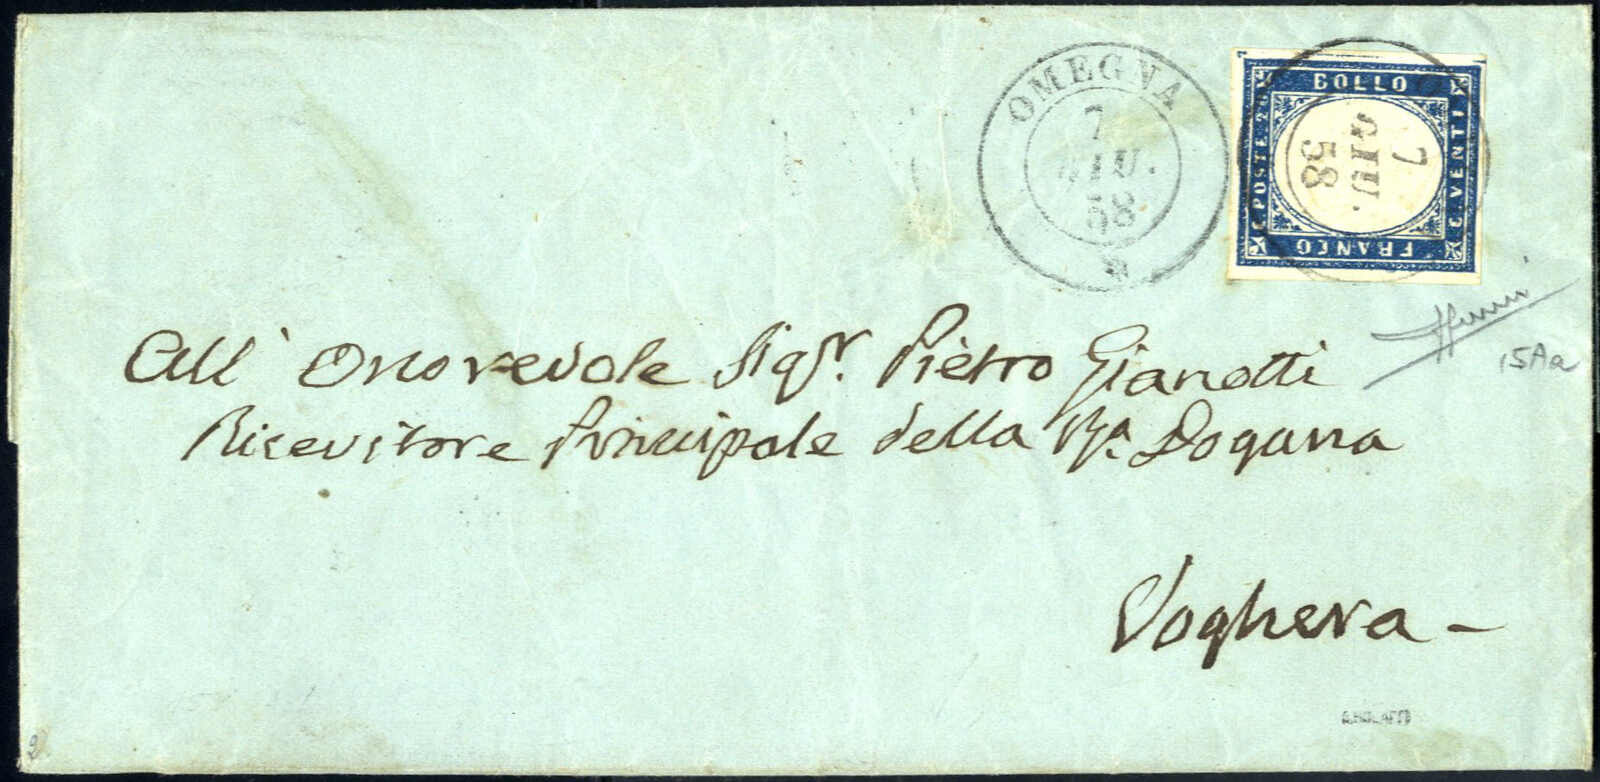 OMEGNA
7
GIU.
58
C. POSTE 20
BOLLO
C. VENTI
FRANCO
7
GIU.
58
15Aa
All' Onorevole Sigr. Pietro Gianotti
Ricevitore Principale della Ra. Dogana
Voghera -
A. BOLAFFI
2